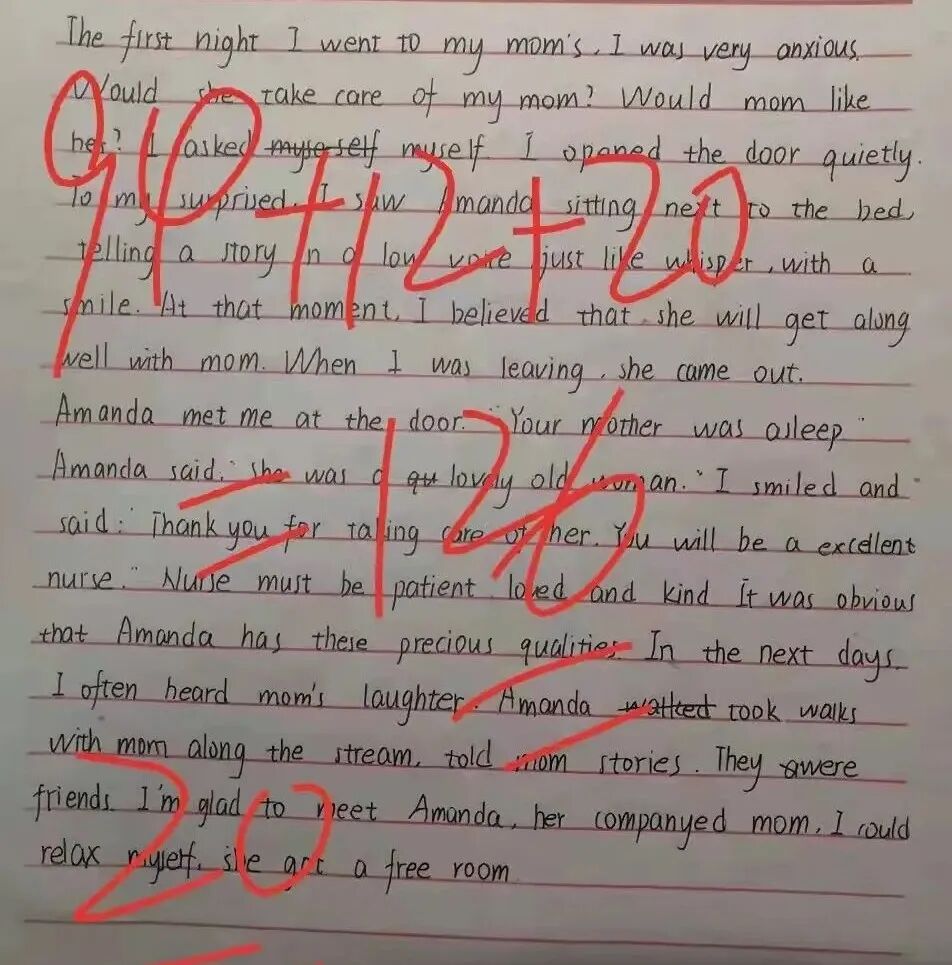 The first night I went to my mom's, I was very anxious.
Would she take care of my mom? Would mom like
her? I asked myse self myself. I opened the door quietly.
To my surprised, I saw Amanda sitting next to the bed,
telling a story in a low voice just like whisper, with a
smile. At that moment, I believed that she will get along
well with mom. When I was leaving, she came out.
Amanda met me at the door. "Your mother was asleep"
Amanda said. "she was a qu lovely old woman." I smiled and
said: "Thank you for taking care of her. You will be a excellent
nurse." Nurse must be patient, loved and kind It was obvious
that Amanda has these precious qualities. In the next days.
I often heard mom's laughter. Amanda walked took walks
with mom along the stream, told mom stories. They were
friends. I'm glad to meet Amanda, her companyed mom, I could
relax myself, she got a free room
90+12+20
=126
20